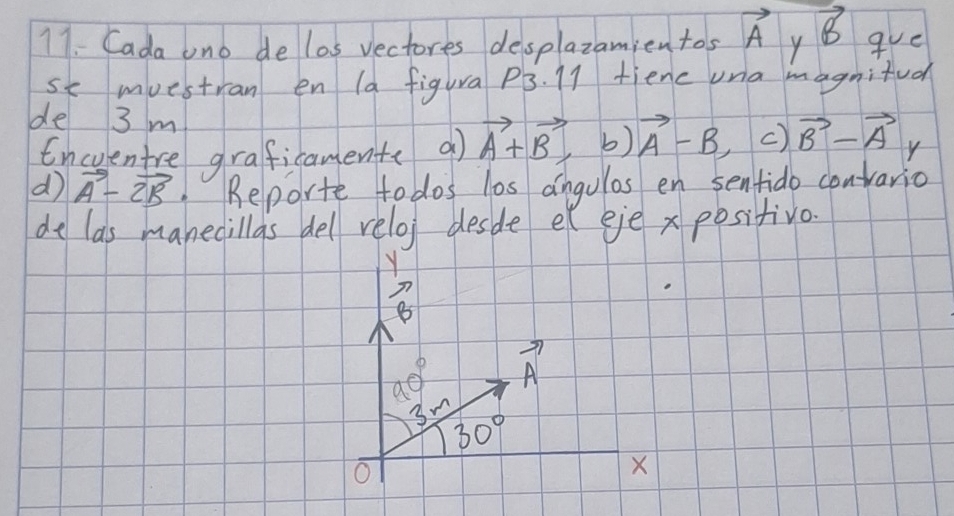 11.- Cada uno de los vectores desplazamientos A⃗ y B⃗ que
se muestran en la figura P3.11 tiene una magnitud
de 3 m
Encuentre graficamente a) A⃗+B⃗, b) A⃗-B, c) B⃗-A⃗ y
d) A⃗-2B⃗. Reporte todos los ángulos en sentido contrario
de las manecillas del reloj desde el eje x positivo.
Y
B⃗
A⃗
90°
3m
30°
O
X